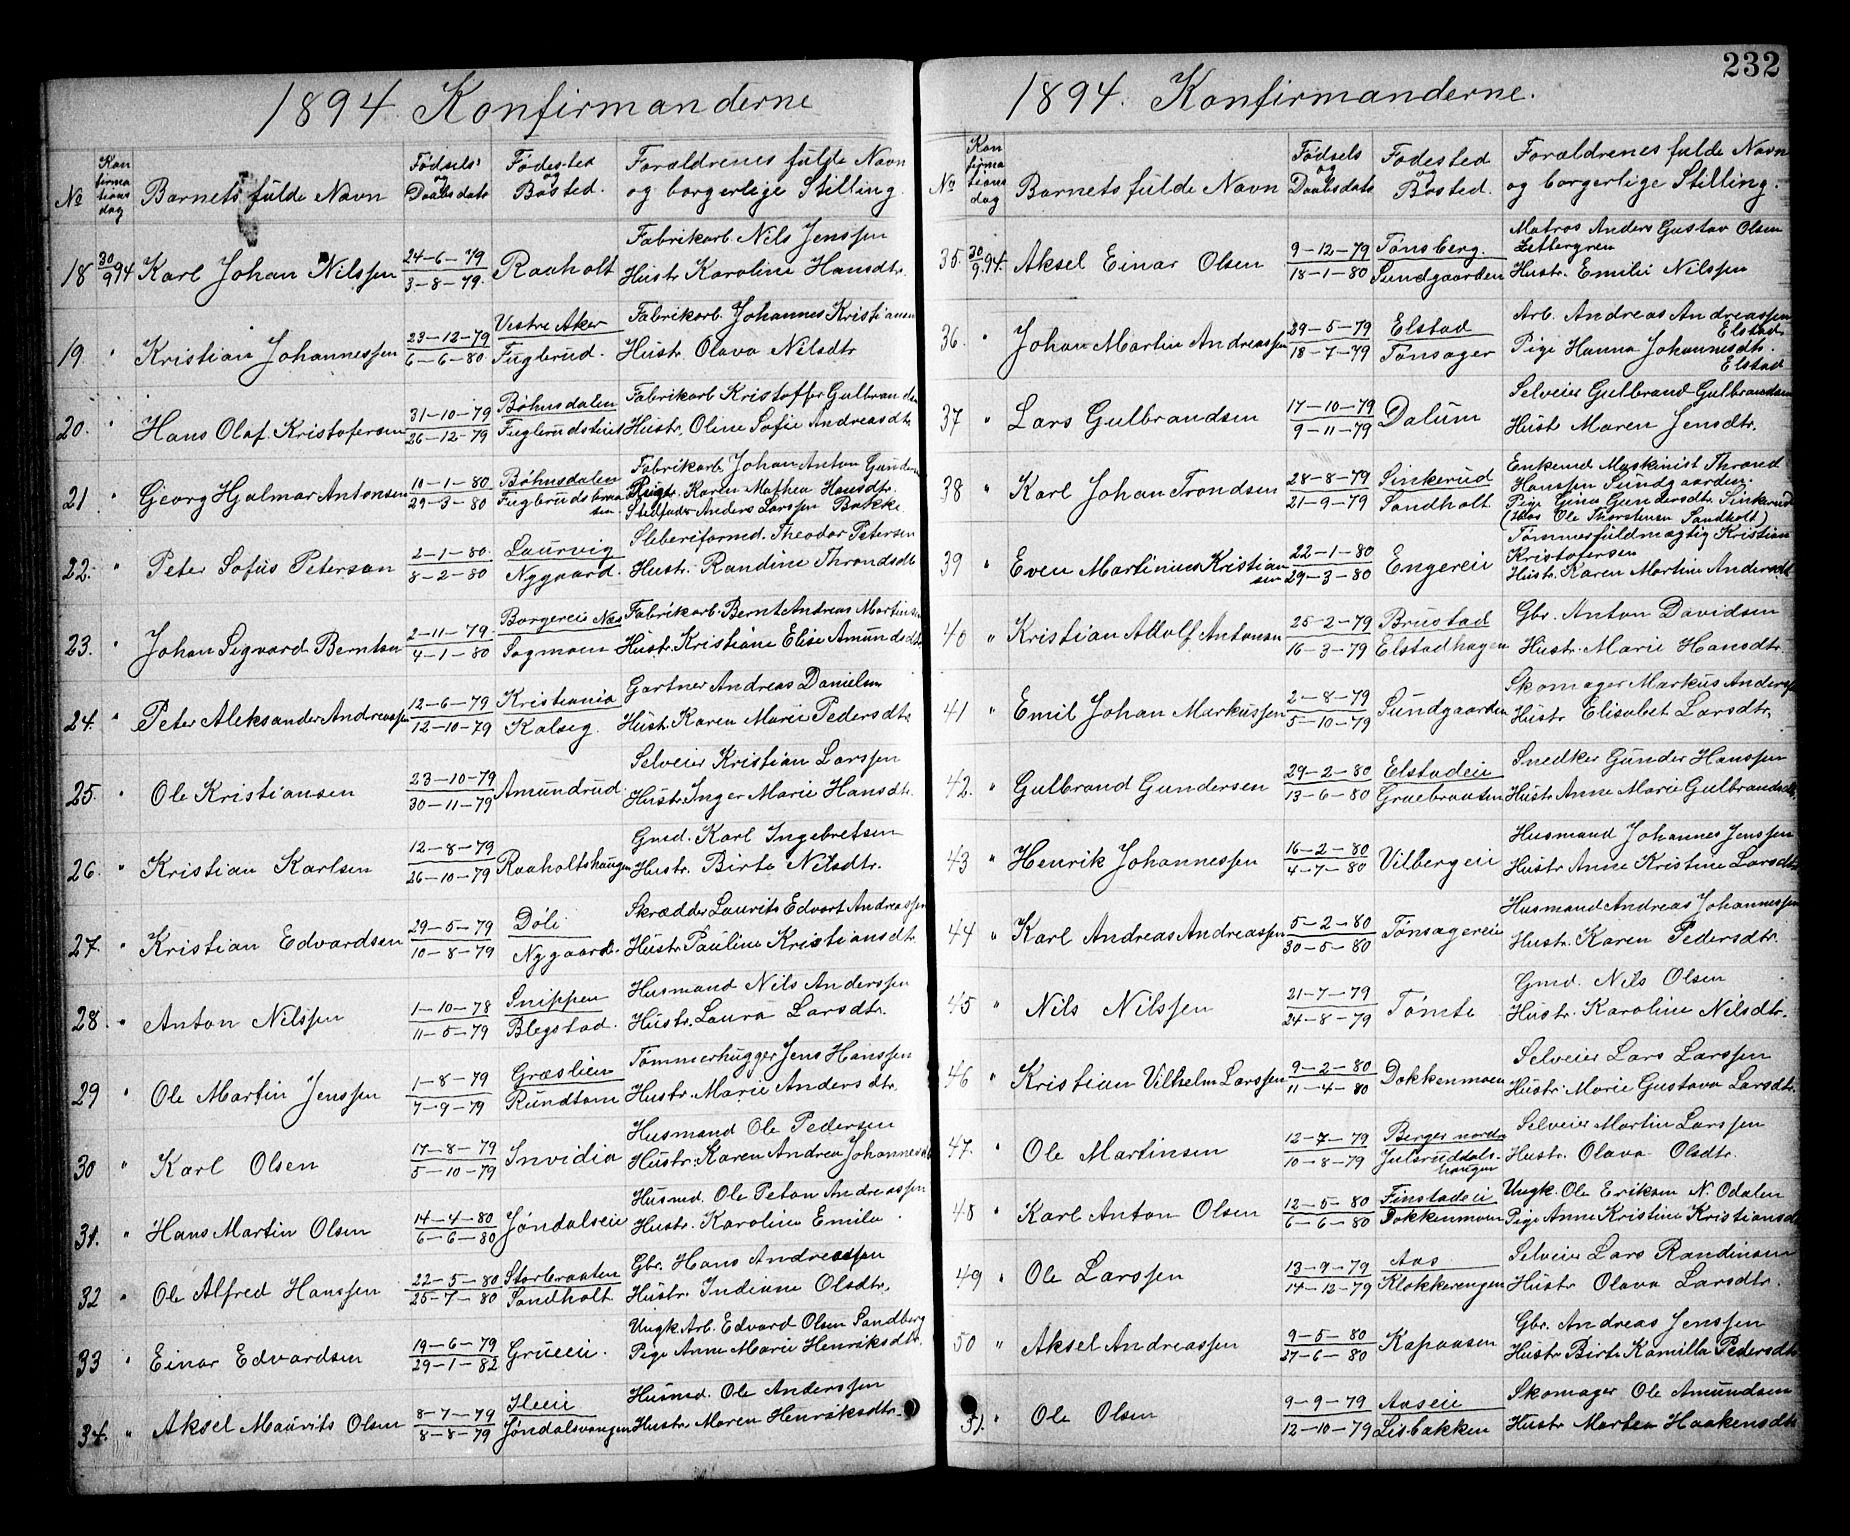 232
1894. Konfirmanderne
№ Konfirmationsdag Barnets fulde Navn Fødsels og Daabsdato Fødested og Bosted. Forældrenes fulde Navn og borgerlige Stilling.
18 30/9 94 Karl Johan Nilssen 24-6-79 3-8-79. Raaholt Fabrikarb. Nils Jenssen
Hustr. Karoline Hansdtr.
19. " Kristian Johannessen 23-12-79 6-6-80. Vestre Aker Fuglerud. Fabrikarb. Johannes Kristiansen
Hustr. Olava Nilsdtr
20. " Hans Olaf Kristofersen 31-10-79 26-12-79 Bøhnsdalen Fabrikarb. Kristoffer Gulbrandsen
Hustr. Oline Sofie Andreasdtr
21 " Georg Hjalmar Antonsen 10-1-80 29-3-80 Bøhnsdalen Fuglerudsbraasen Fabrikarb. Johan Anton Gunders
Karen Mathea Hansdtr.
Stedfader Anders Larssen Bakke
22. " Peter Sofus Petersen 2-1-80. 8-2-80 Laurvig Nygaard. Sleberiformd. Theodor Petersen
Hustr. Randine Throndsdtr
23. " Johan Sigvard Berntsen 2-11-79. 4-1-80 Borgereie Næs Sagmoen Fabrikarb. Bernt Andreas Martinsen
Hustr. Kristiane Elise Amundsdtr
24. " Peter Aleksander Andreassen 12-6-79 12-10-79 Kristiania Kalseg. Gartner Andreas Danielsen
Hustr. Karen Marie Pedersdtr
25. " Ole Kristiansen 23-10-79 30-11-79 Amundrud. Selveier Kristian Larssen
Hustr. Inger Marie Hansdtr.
26. " Kristian Karlsen 12-8-79 26-10-79 Raaholtshaugen Gmd. Karl Ingebretsen
Hustr. Birte Nilsdtr.
27. " Kristian Edvardsen 29-5-79 10-8-79 Døli Nygaard. Skrædder Laurits Edvart Andreassen
Hustr. Pauline Kristiansdtr.
28. " Anton Nilssen 1-10-78 11-5-79 Snippen Blegstad. Husmand Nils Anderssen
Hustr. Laura Larsdtr.
29 " Ole Martin Jenssen 1-8-79 7-9-79 Græslien Rundtom Tømmerhugger Jens Hanssen
Hustr. Marie Andersdtr.
30 " Karl Olsen 17-8-79 5-10-79 Invidia Husmand Ole Pedersen
Hustr. Karen Andrea Johannesdtr
31. " Hans Martin Olsen 14-4-80 6-6-80 Jøndalseie Husmd. Ole Petan Andreassen
Hustr. Karoline Emilie
32 " Ole Alfred Hanssen 22-5-80 25-7-80 Storbraaten Sandholt Gbr. Hans Andreassen
Hustr. Indiane Olsdtr.
33 " Einar Edvardsen 19-6-79 29-1-82 Grüeeie. Ungk. Arb. Edvard Olsen Sandberg
Pige Anne Marie Henriksdtr.
34. " Aksel Maurits Olsen 8-7-79 8-8-79 Ileeie Jøndalsvangen Husmd. Ole Anderssen
Hustr. Maren Henriksdtr.
1894. Konfirmanderne.
№ Konfirmationsdag Barnets fulde Navn Fødsels og Daabsdato Fødested og Bosted. Forældrenes fulde Navn og borgerlige Stilling.
35. 30/9 94. Aksel Einar Olsen 9-12-79 18-1-80 Tønsberg. Sundgaarden Matros Anders Gustav Olsen
Zettergren
Hustr. Emilie Nilssen
36. " Johan Martin Andreassen 29-5-79 18-7-79 Elstad Tønsager Arb. Andreas Andreassen
Elstad
Pige Hanna Johannesdtr.
Elstad
37 " Lars Gulbrandsen 17-10-79 9-11-79 Dalum Selveier Gulbrand Gulbrandsen
Hustr Maren Jensdtr.
38 " Karl Johan Trondsen 28-8-79 21-9-79 Sinkerud Sandholt Enkemd Maskinist Thrond
Hanssen Sundgaarden.
Pige Gina Gundersdtr. Sinkerud
(Hos Ole Thorstensen Sandholt)
39 " Even Martinius Kristiansen 22-1-80 29-3-80 Engereie Tømmerfuldmægtig Kristian
Kristofersen
Hustr. Karen Martine Andersdtr
40 " Kristian Adolf Antonsen 25-2-79 16-3-79 Brustad Elstadhagen Gbr. Anton Davidsen
Hustr. Marie Hansdtr.
41 " Emil Johan Markussen 2-8-79 5-10-79 Sundgaarden Skomager Markus Anderssen
Hustr Elisabet Larsdtr.
42. " Gulbrand Gundersen 29-2-80 13-6-80 Elstadeie Gruebraaten Snedker Gunder Hanssen
Hustr Anne Marie Gulbrandsdtr
43 " Henrik Johannessen 16-2-80 4-7-80 Vilbergeie Husmand Johannes Jenssen
Hustr Anne Kristine Larsdtr
44 " Karl Andreas Andreassen 5-2-80 30-5-80 Tønsagereie Husmand Andreas Johannessen
Hustr. Karen Pedersdtr.
45 " Nils Nilssen 21-7-79 24-8-79 Tømte Gmd. Nils Olsen
Hustr. Karoline Nilsdtr.
46 " Kristian Vilhelm Larssen 9-2-80 11-4-80 Dokkenmoen Selveier Lars Larssen
Hustr. Marie Gustava Larsdtr.
47. " Ole Martinsen 12-7-79 10-8-79 Berger nordre Julsruddalshaugen Selveier Martin Larssen
Hustr. Olava Olsdtr.
48 " Karl Anton Olsen 12-5-80 6-6-80 Finstadeie Dokkenmoen Ungk. Ole Eriksen N. Odalen
Pige Anne Kristine Kristiansd
49 " Ole Larssen 13-9-79 14-12-79 Aas Klokkerengen Selveier Lars Randinsen
Hustr Olava Larsdtr.
50 " Aksel Andreassen 9-5-80 27-6-80 Kapaasen Gbr. Andreas Jenssen
Hustr Birte Kamilla Pedersdtr
51. " Ole Olsen 9-9-79 12-10-79 Aaseie Lisbakken Skomager Ole Amundsen
Hustr Martea Haakensdtr